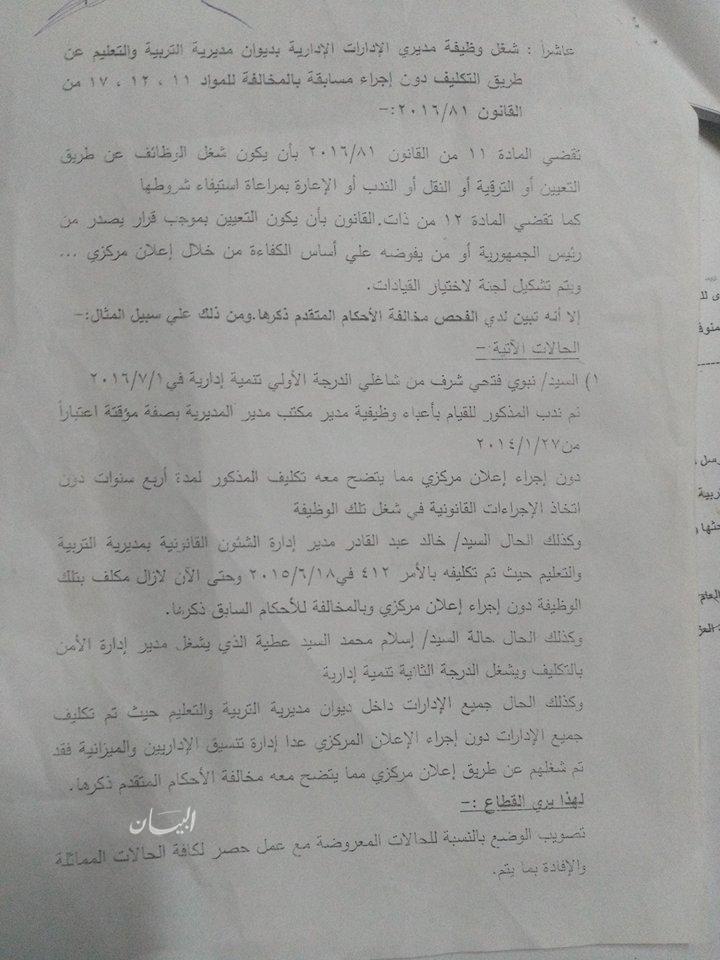 عاشراً : شغل وظيفة مديري الإدارات الإدارية بديوان مديرية التربية والتعليم عن
طريق التكليف دون إجراء مسابقة بالمخالفة للمواد ١١ ، ١٢ ، ١٧ من
القانون ٢٠١٦/٨١:-
تقضي المادة ١١ من القانون ٢٠١٦/٨١ بأن يكون شغل الوظائف عن طريق
التعيين أو الترقية أو النقل أو الندب أو الإعارة بمراعاة استيفاء شروطها
كما تقضي المادة ١٢ من ذات.القانون بأن يكون التعيين بموجب قرار يصدر من
رئيس الجمهورية أو من يفوضه علي أساس الكفاءة من خلال إعلان مركزي ...
ويتم تشكيل لجنة لاختيار القيادات.
إلا أنه تبين لدي الفحص مخالفة الأحكام المتقدم ذكرها.ومن ذلك علي سبيل المثال:-
الحالات الآتية :-
١) السيد/ نبوي فتحي شرف من شاغلي الدرجة الأولي تنمية إدارية في٢٠١٦/٧/١
تم ندب المذكور للقيام بأعباء وظيفية مدير مكتب مدير المديرية بصفة مؤقتة اعتباراً
من٢٠١٤/١/٢٧
دون إجراء إعلان مركزي مما يتضح معه تكليف المذكور لمدة أربع سنوات دون
اتخاذ الإجراءات القانونية في شغل تلك الوظيفة
وكذلك الحال السيد/ خالد عبد القادر مدير إدارة الشئون القانونية بمديرية التربية
والتعليم حيث تم تكليفه بالأمر ٤١٢ في٢٠١٥/٦/١٨ وحتى الآن لازال مكلف بتلك
الوظيفة دون إجراء إعلان مركزي وبالمخالفة للأحكام السابق ذكرها.
وكذلك الحال حالة السيد/ إسلام محمد السيد عطية الذي يشغل مدير إدارة الأمن
بالتكليف ويشغل الدرجة الثانية تنمية إدارية
وكذلك الحال جميع الإدارات داخل ديوان مديرية التربية والتعليم حيث تم تكليف
جميع الإدارات دون إجراء الإعلان المركزي عدا إدارة تنسيق الإداريين والميزانية فقد
تم شغلهم عن طريق إعلان مركزي مما يتضح معه مخالفة الأحكام المتقدم ذكرها.
لهذا يري القطاع :-
البيان
تصويب الوضع بالنسبة للحالات المعروضة مع عمل حصر لكافة الحالات المماثلة
والإفادة بما يتم.